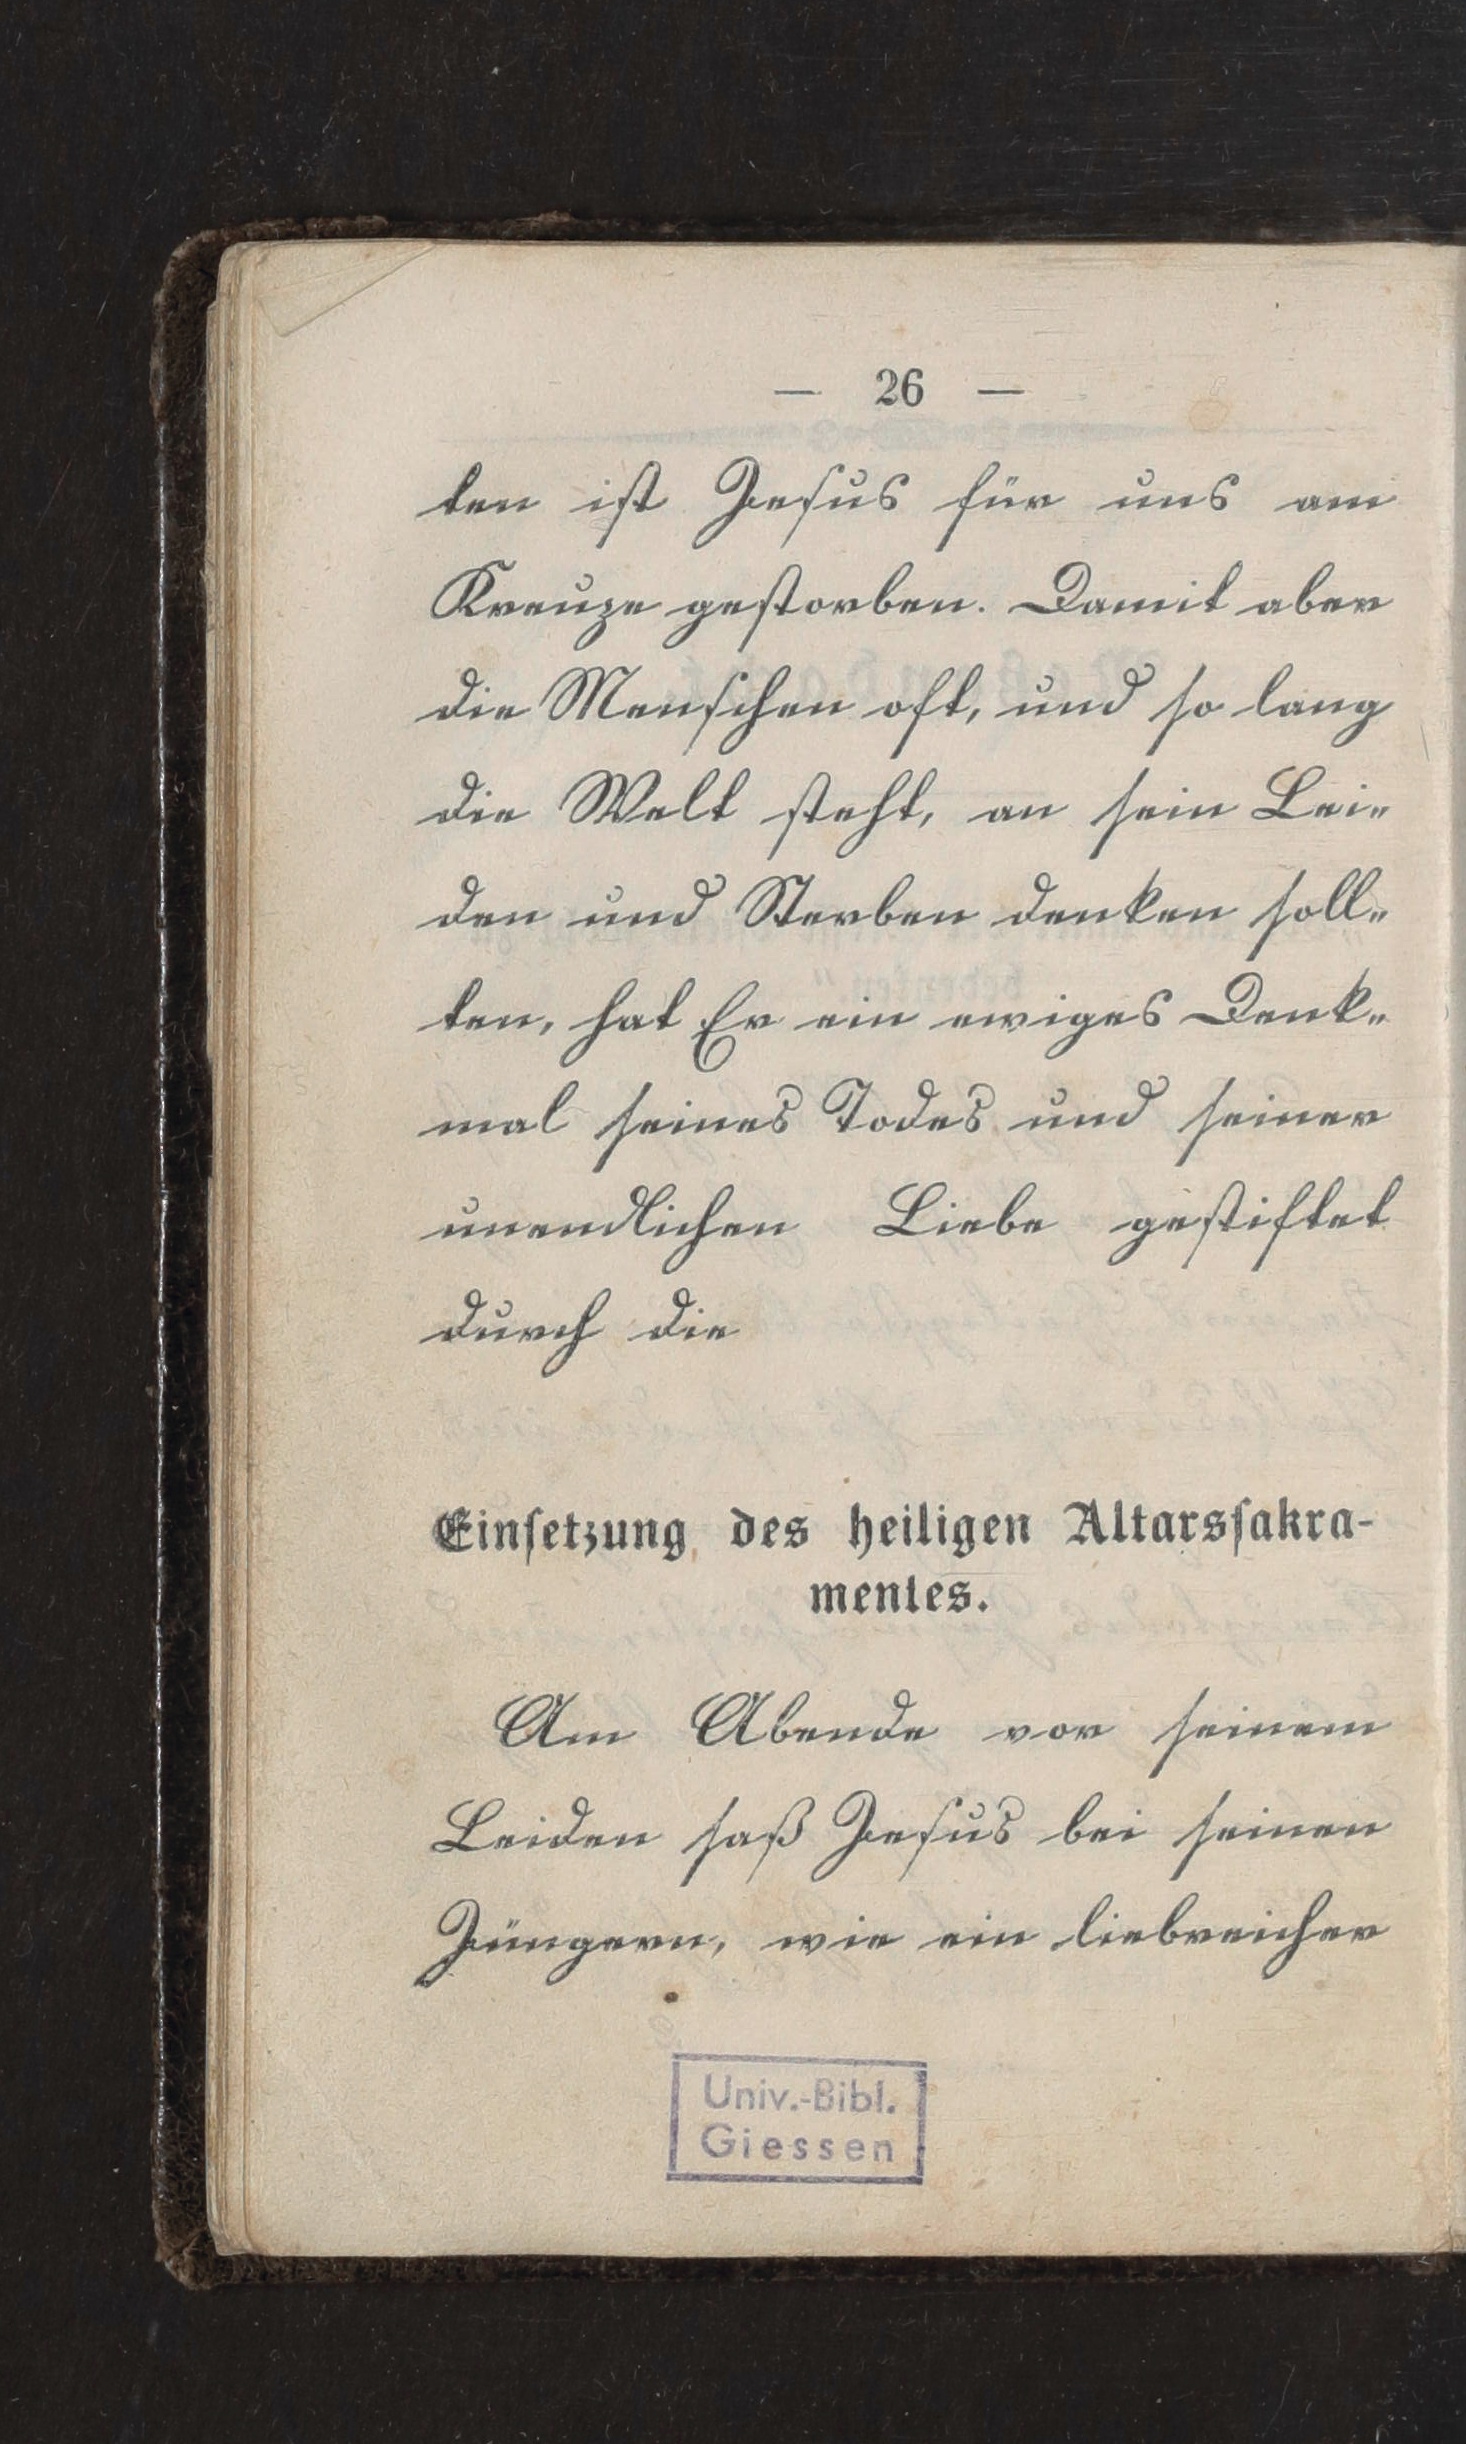 — 26 —
ten ist Jesus für uns am
Kreuze gestorben. Damit aber
die Menschen oft, und so lang
die Welt steht, an sein Lei-
den und Sterben denken soll-
ten, hat Er ein ewiges Denk-
mal seines Todes und seiner
unendlichen Liebe gestiftet
durch die
Einsetzung des heiligen Altarssakra-
mentes.
Am Abende vor seinem
Leiden saß Jesus bei seinen
Jüngern, wie ein liebreicher
Univ.-Bibl.
Giessen